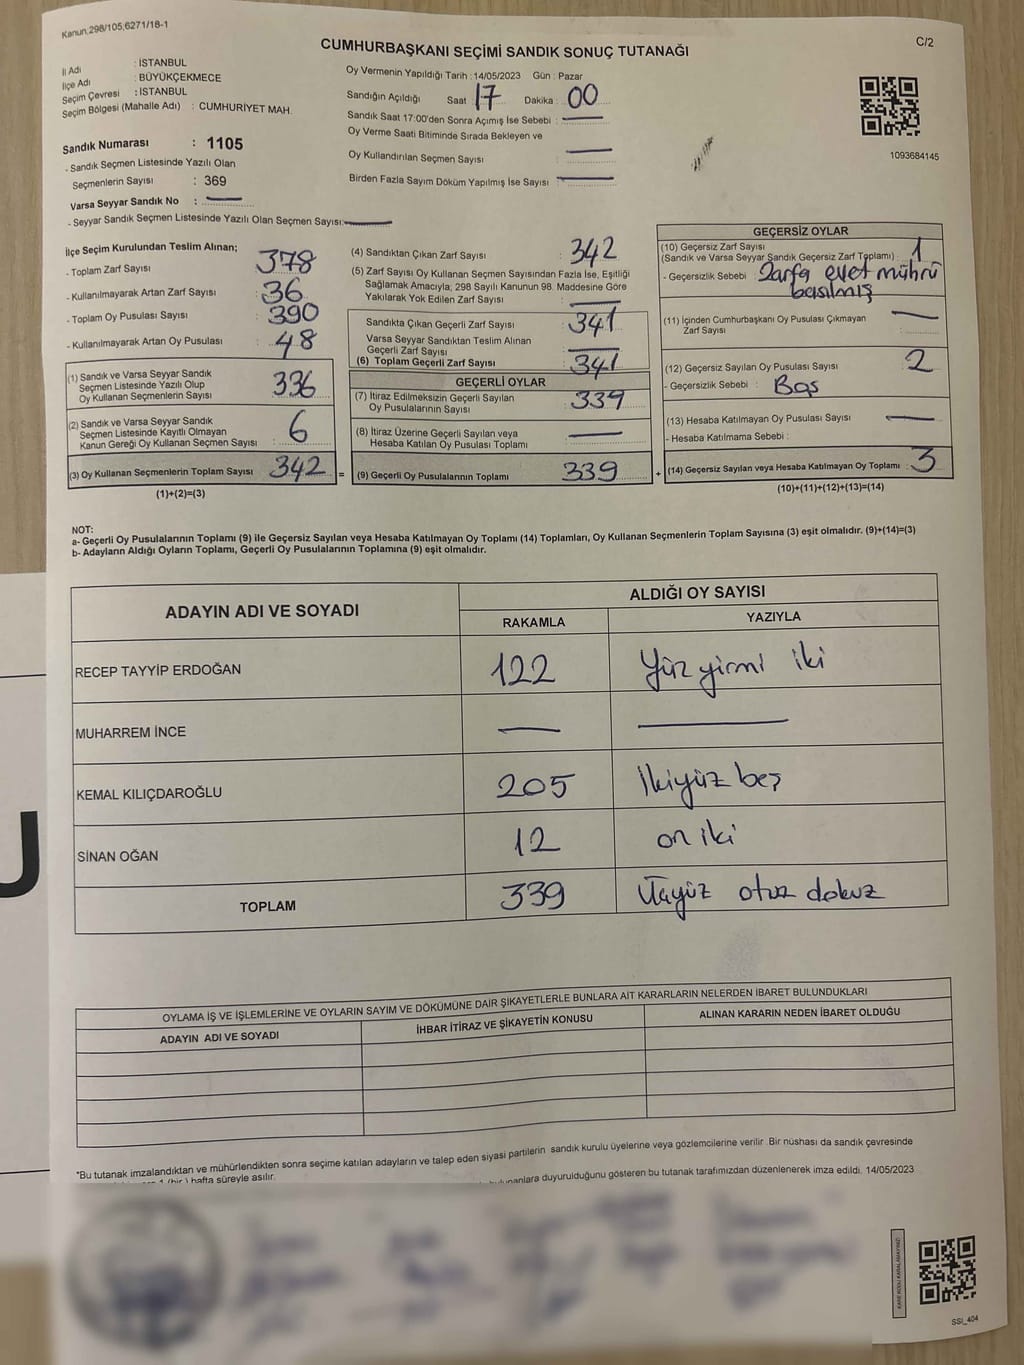 Kanun,298/105;6271/18-1
C/2
CUMHURBAŞKANI SEÇİMİ SANDIK SONUÇ TUTANAĞI
İl Adı : İSTANBUL
İlçe Adı : BÜYÜKÇEKMECE
Seçim Çevresi : İSTANBUL
Seçim Bölgesi (Mahalle Adı) : CUMHURİYET MAH.
Sandık Numarası : 1105
- Sandık Seçmen Listesinde Yazılı Olan
Seçmenlerin Sayısı : 369
Varsa Seyyar Sandık No : —
- Seyyar Sandık Seçmen Listesinde Yazılı Olan Seçmen Sayısı: —
Oy Vermenin Yapıldığı Tarih : 14/05/2023 Gün : Pazar
Sandığın Açıldığı Saat : 17 Dakika : 00
Sandık Saat 17:00'den Sonra Açımış İse Sebebi : —
Oy Verme Saati Bitiminde Sırada Bekleyen ve —
Oy Kullandırılan Seçmen Sayısı :
Birden Fazla Sayım Döküm Yapılmış İse Sayısı : —
1093684145
İlçe Seçim Kurulundan Teslim Alınan;
- Toplam Zarf Sayısı : 378
- Kullanılmayarak Artan Zarf Sayısı : 36
- Toplam Oy Pusulası Sayısı : 390
- Kullanılmayarak Artan Oy Pusulası : 48
(1) Sandık ve Varsa Seyyar Sandık
Seçmen Listesinde Yazılı Olup
Oy Kullanan Seçmenlerin Sayısı : 336
(2) Sandık ve Varsa Seyyar Sandık
Seçmen Listesinde Kayıtlı Olmayan
Kanun Gereği Oy Kullanan Seçmen Sayısı : 6
(3) Oy Kullanan Seçmenlerin Toplam Sayısı : 342 =
(1)+(2)=(3)
(4) Sandıktan Çıkan Zarf Sayısı : 342
(5) Zarf Sayısı Oy Kullanan Seçmen Sayısından Fazla İse, Eşitliği
Sağlamak Amacıyla; 298 Sayılı Kanunun 98. Maddesine Göre
Yakılarak Yok Edilen Zarf Sayısı : —
Sandıkta Çıkan Geçerli Zarf Sayısı : 341
Varsa Seyyar Sandıktan Teslim Alınan
Geçerli Zarf Sayısı : —
(6) Toplam Geçerli Zarf Sayısı : 341
GEÇERLİ OYLAR
(7) İtiraz Edilmeksizin Geçerli Sayılan
Oy Pusulalarının Sayısı : 339
(8) İtiraz Üzerine Geçerli Sayılan veya
Hesaba Katılan Oy Pusulası Toplamı : —
(9) Geçerli Oy Pusulalarının Toplamı : 339 +
GEÇERSİZ OYLAR
(10) Geçersiz Zarf Sayısı
(Sandık ve Varsa Seyyar Sandık Geçersiz Zarf Toplamı) : 1
- Geçersizlik Sebebi : Zarfa evet mührü
basılmış
(11) İçinden Cumhurbaşkanı Oy Pusulası Çıkmayan
Zarf Sayısı : —
(12) Geçersiz Sayılan Oy Pusulası Sayısı : 2
- Geçersizlik Sebebi : Boş
(13) Hesaba Katılmayan Oy Pusulası Sayısı : —
- Hesaba Katılmama Sebebi :
(14) Geçersiz Sayılan veya Hesaba Katılmayan Oy Toplamı : 3
(10)+(11)+(12)+(13)=(14)
NOT:
a- Geçerli Oy Pusulalarının Toplamı (9) ile Geçersiz Sayılan veya Hesaba Katılmayan Oy Toplamı (14) Toplamları, Oy Kullanan Seçmenlerin Toplam Sayısına (3) eşit olmalıdır. (9)+(14)=(3)
b- Adayların Aldığı Oyların Toplamı, Geçerli Oy Pusulalarının Toplamına (9) eşit olmalıdır.
ADAYIN ADI VE SOYADI
ALDIĞI OY SAYISI
RAKAMLA YAZIYLA
RECEP TAYYİP ERDOĞAN 122 Yüz yirmi iki
MUHARREM İNCE — —
KEMAL KILIÇDAROĞLU 205 İkiyüz beş
SİNAN OĞAN 12 on iki
TOPLAM 339 Üçyüz otuz dokuz
OYLAMA İŞ VE İŞLEMLERİNE VE OYLARIN SAYIM VE DÖKÜMÜNE DAİR ŞİKAYETLERLE BUNLARA AİT KARARLARIN NELERDEN İBARET BULUNDUKLARI
ADAYIN ADI VE SOYADI İHBAR İTİRAZ VE ŞİKAYETİN KONUSU ALINAN KARARIN NEDEN İBARET OLDUĞU
*Bu tutanak imzalandıktan ve mühürlendikten sonra seçime katılan adayların ve talep eden siyasi partilerin sandık kurulu üyelerine veya gözlemcilerine verilir. Bir nüshası da sandık çevresinde
1 (bir) hafta süreyle asılır.
duyurulduğunu gösteren bu tutanak tarafımızdan düzenlenerek imza edildi. 14/05/2023
KARE KODU KARALAMAYINIZ!
SSI_404
U